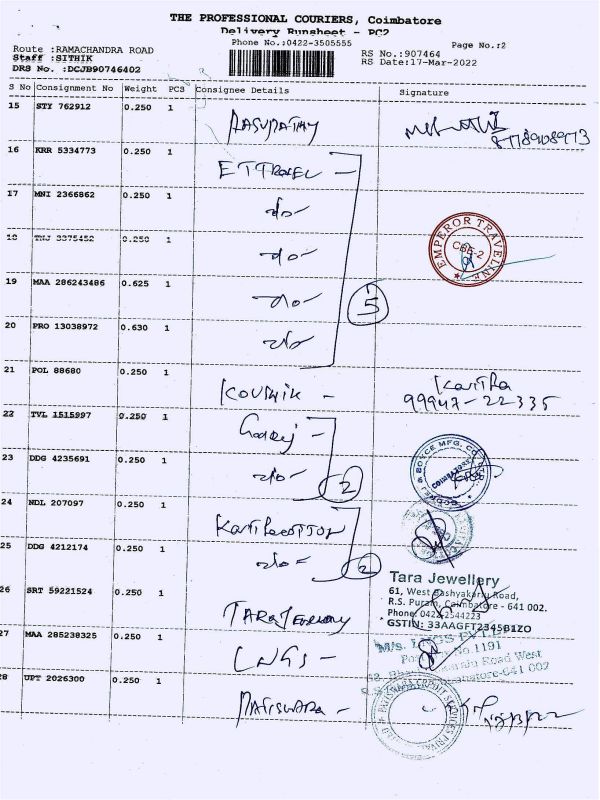 THE PROFESSIONAL COURIERS, Coimbatore
Delivery Runsheet - PC2
Phone No.:0422-3505555
Page No.:2
Route :RAMACHANDRA ROAD
Staff :SITHIK
DRS No. :DCJB90746402
RS No.:907464
RS Date:17-Mar-2022
S No Consignment No Weight PCS Consignee Details Signature
15 STY 762912 0.250 1
16 KRR 5334773 0.250 1
17 MNI 2366862 0.250 1 do
18 TNJ 3375452 0.250 1 do
EMPEROR TRAVELINE
CBE-2
19 MAA 286243486 0.625 1 do
5
20 PRO 13038972 0.630 1 do
21 POL 88680 0.250 1 KOUSHIK -
99947-22335
22 TVL 1515997 0.250 1 Godrej -
23 DDG 4235691 0.250 1 do
2
24 NDL 207097 0.250 1
25 DDG 4212174 0.250 1 do
2
Tara Jewellery
61, West Bashyakarlu Road,
R.S. Puram, Coimbatore - 641 002.
Phone: 0422-2544223
GSTIN: 33AAGFT2345B1ZO
26 SRT 59221524 0.250 1 TARA Jewellery
27 MAA 285238325 0.250 1 LNGS -
M/s. LNGS PVT LTD
No.1191
Road West
Coimbatore-641 002
28 UPT 2026300 0.250 1